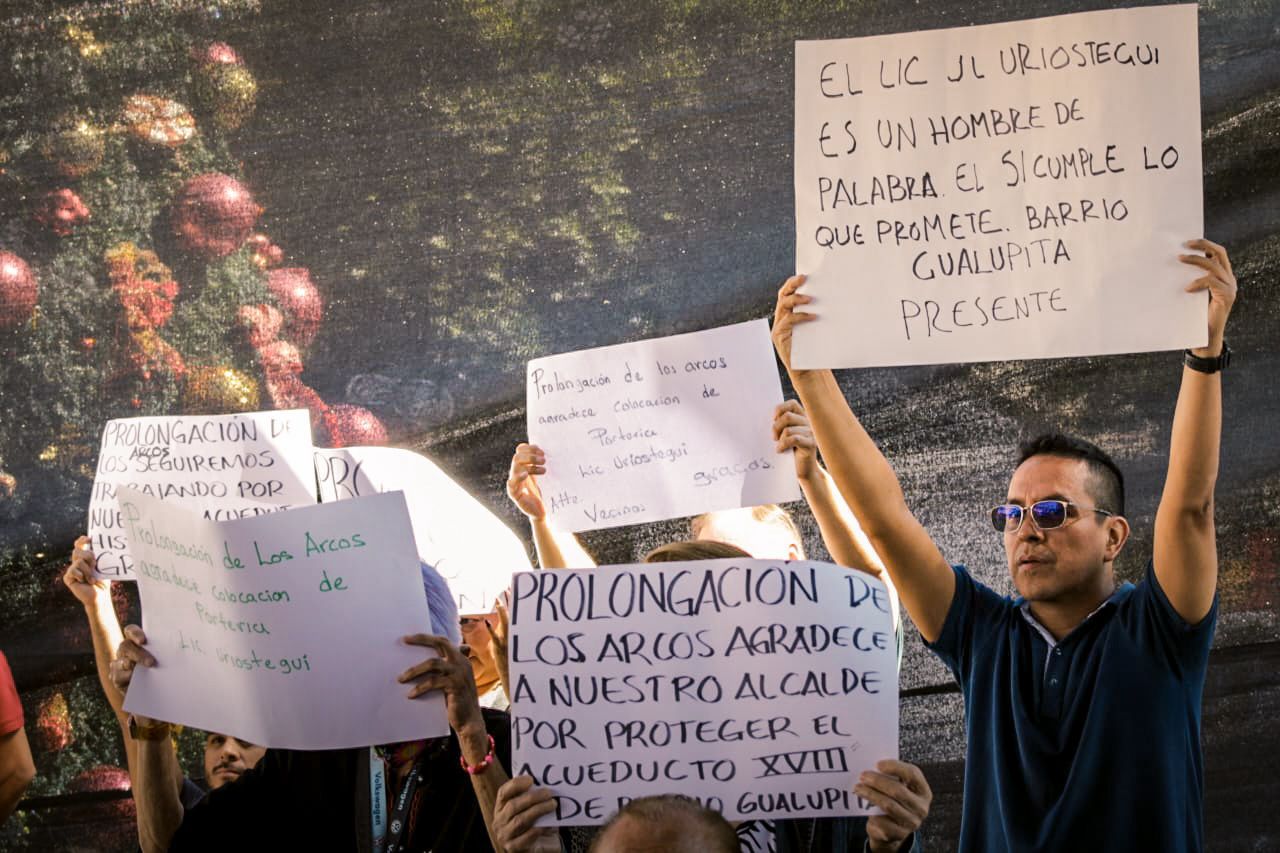 EL LIC JL URIOSTEGUI
ES UN HOMBRE DE
PALABRA. EL SI CUMPLE LO
QUE PROMETE. BARRIO
GUALUPITA
PRESENTE
Prolongación de los arcos
agradece colocacion de
Porteria
Lic Uriostegui
gracias.
Atte.
Vecinos
PROLONGACIÓN DE
LOS ARCOS SEGUIREMOS
TRABAJANDO POR
NUE
ACUEDU
HIS
GR
PRO
Prolongación de Los Arcos
agradece colocacion de
Porteria
Lic. Uriostegui
PROLONGACION DE
LOS ARCOS AGRADECE
A NUESTRO ALCALDE
POR PROTEGER EL
ACUEDUCTO XVIII
DE GUALUPITA
Volkswagen